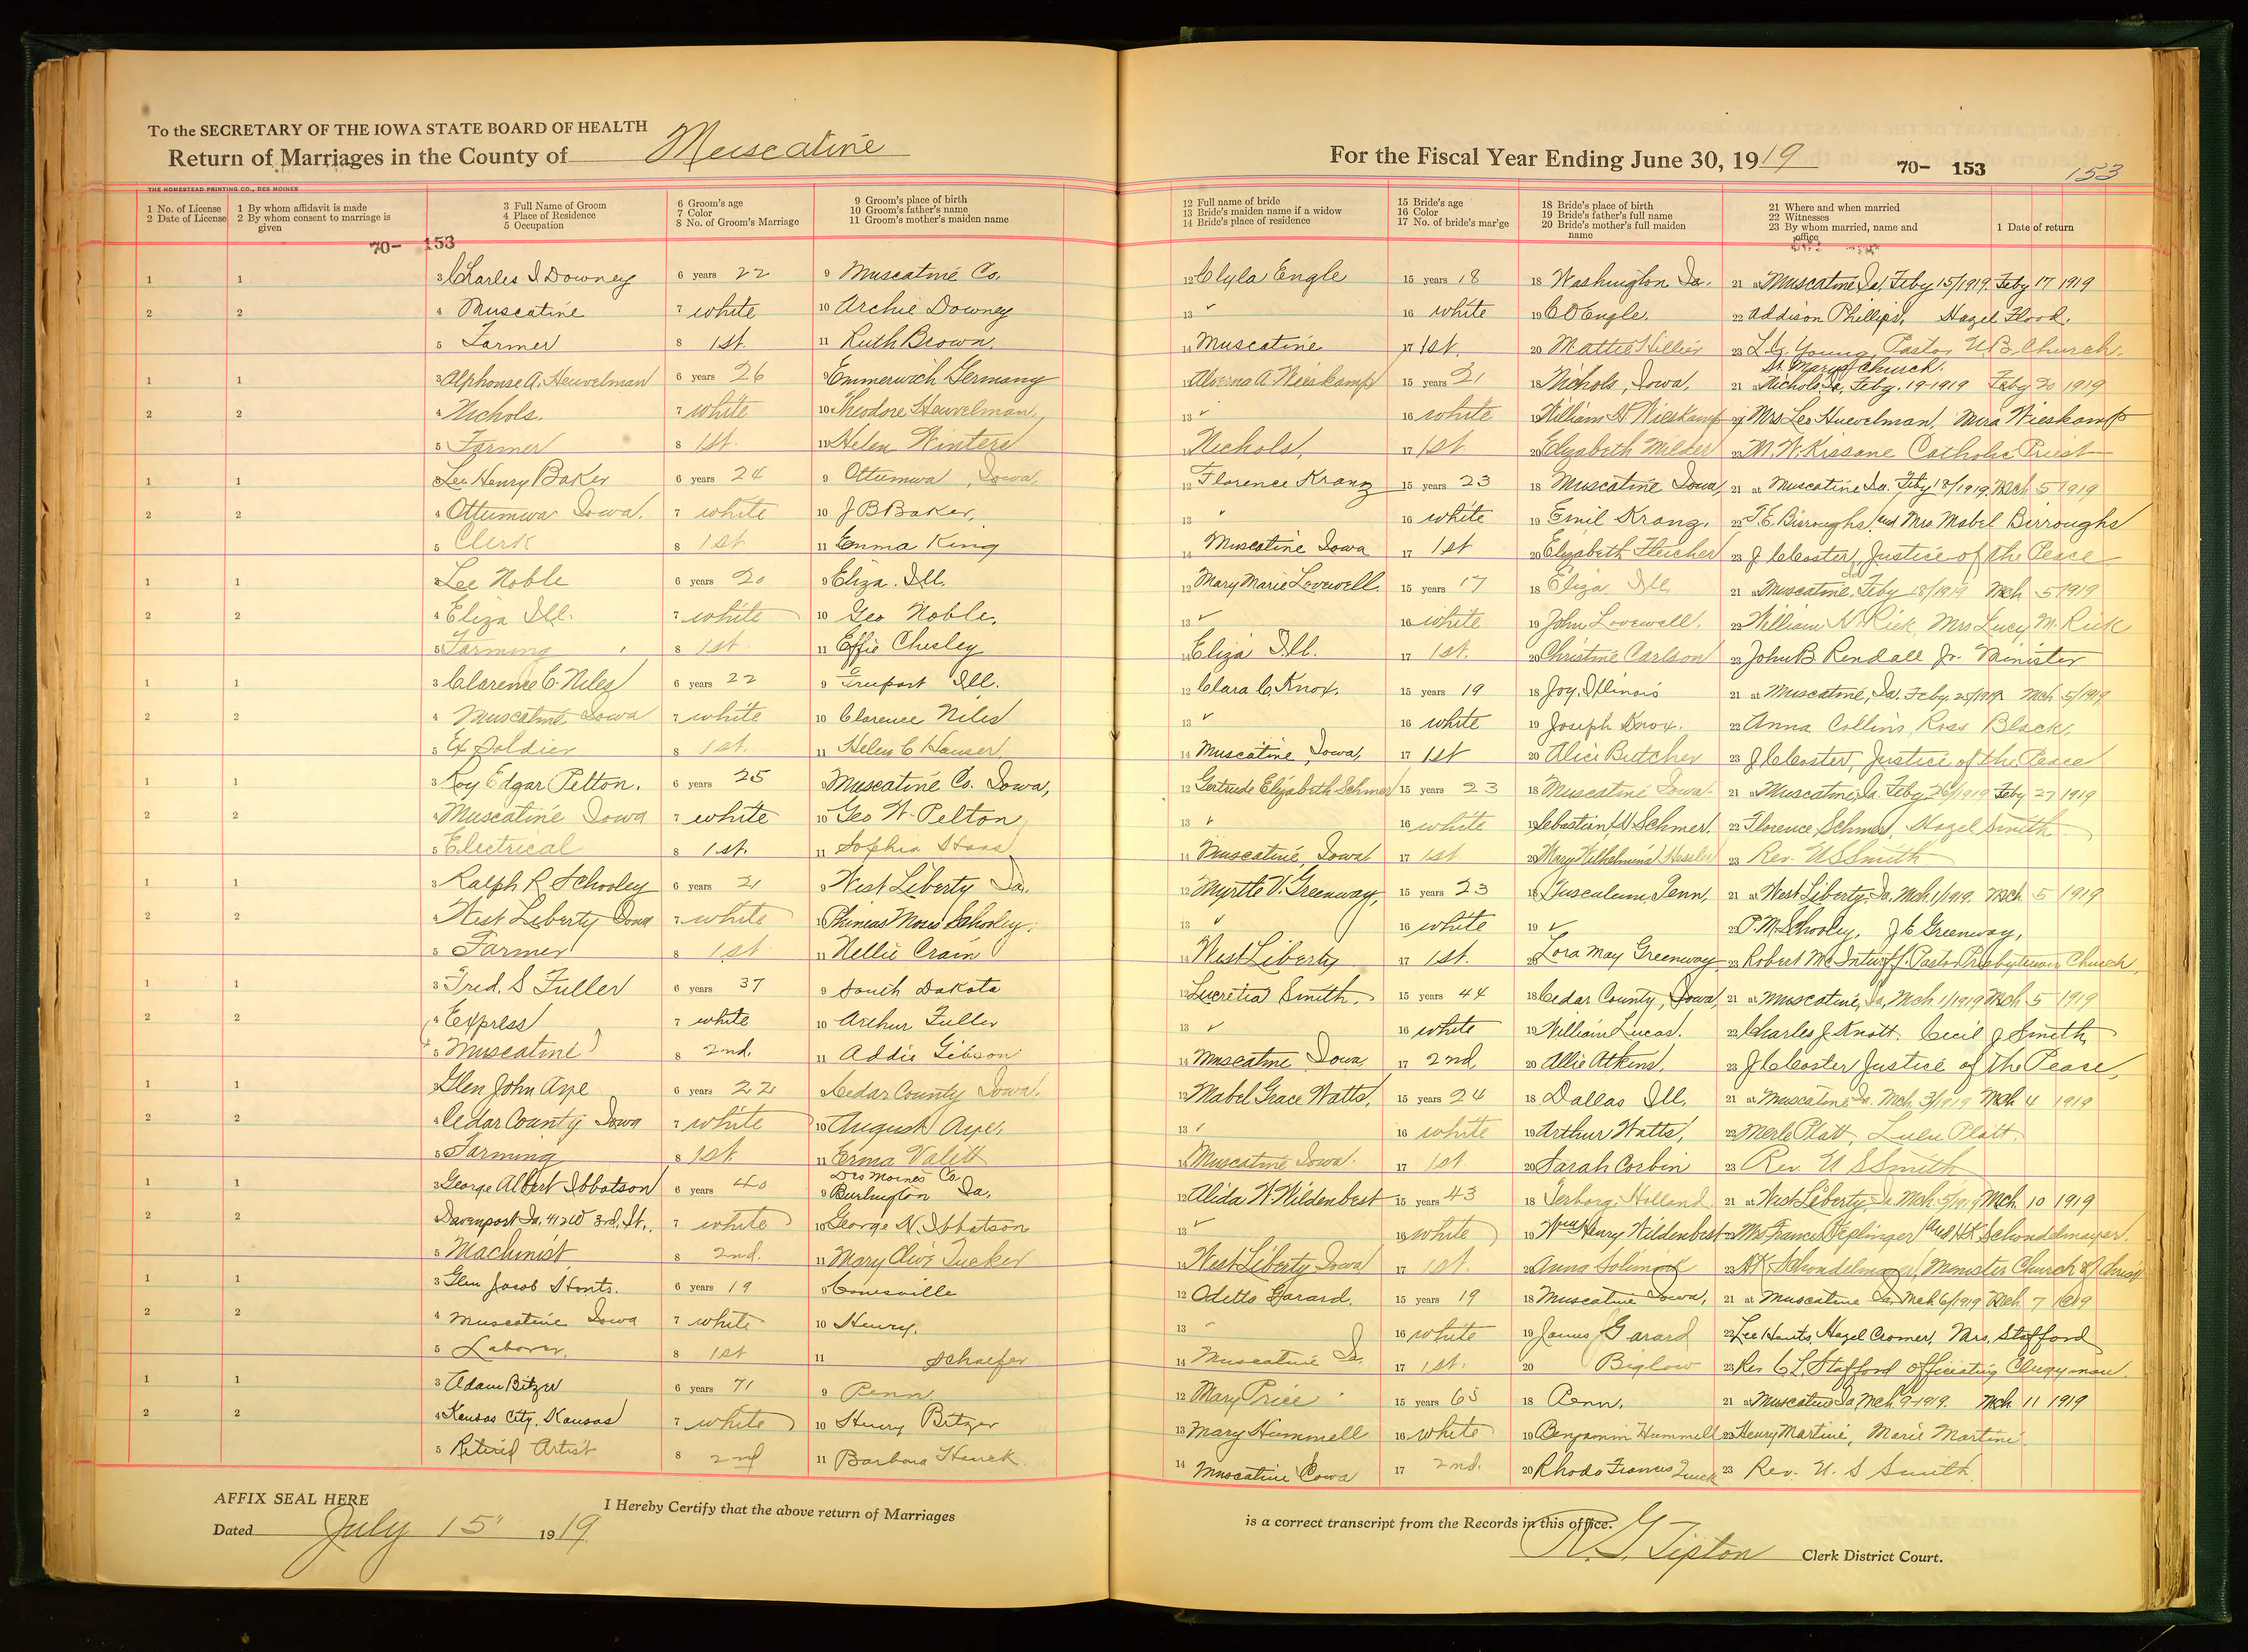 To the SECRETARY OF THE IOWA STATE BOARD OF HEALTH
Return of Marriages in the County of Muscatine
THE HOMESTEAD PRINTING CO., DES MOINES
1 No. of License
2 Date of License
1 By whom affidavit is made
2 By whom consent to marriage is given
3 Full Name of Groom
4 Place of Residence
5 Occupation
6 Groom's age
7 Color
8 No. of Groom's Marriage
9 Groom's place of birth
10 Groom's father's name
11 Groom's mother's maiden name
70- 153
1 1 3 Charles I Downey 6 years 22 9 Muscatine Co.
2 2 4 Muscatine 7 white 10 Archie Downey
5 Farmer 8 1st. 11 Ruth Brown.
1 1 3 Alphonse A. Heuvelman 6 years 26 9 Emmerwich Germany
2 2 4 Nichols. 7 white 10 Theodore Heuvelman
5 Farmer 8 1st. 11 Helen Winters
1 1 3 Leo Henry Baker 6 years 24 9 Ottumwa, Iowa.
2 2 4 Ottumwa Iowa. 7 white 10 J B Baker.
5 Clerk 8 1st 11 Emma King
1 1 3 Lee Noble 6 years 20 9 Eliza. Ill.
2 2 4 Eliza Ill. 7 white 10 Geo Noble.
5 Farming 8 1st 11 Effie Chesley
1 1 3 Clarence C. Niles 6 years 22 9 Freeport Ill.
2 2 4 Muscatine, Iowa 7 white 10 Clarence Niles
5 Ex Soldier 8 1st. 11 Helen C Hauser
1 1 3 Roy Edgar Pelton. 6 years 25 9 Muscatine Co. Iowa,
2 2 4 Muscatine Iowa 7 white 10 Geo W. Pelton
5 Electrical 8 1st. 11 Sophia
1 1 3 Ralph R Schooley 6 years 21 9 West Liberty Ia.
2 2 4 West Liberty Iowa 7 white 10 Phineas Moses Schooley.
5 Farmer 8 1st 11 Nellie Crain
1 1 3 Fred. S Fuller 6 years 37 9 South Dakota
2 2 4 Express 7 white 10 Arthur Fuller
5 Muscatine 8 2nd. 11 Addie Gibson
1 1 3 Glen John Aye 6 years 22 9 Cedar County Iowa.
2 2 4 Cedar County Iowa 7 white 10 August Aye.
5 Farming 8 1st. 11 Erma Valett
1 1 3 George Albert Ibbotson 6 years 40 9 Des Moines Co. Burlington Ia.
2 2 4 Davenport Ia. 412 W 3rd. St. 7 white 10 George N. Ibbotson
5 Machinist 8 2nd. 11 Mary Olive Tucker
1 1 3 Glen Jacob Honts. 6 years 19 9 Conesville
2 2 4 Muscatine Iowa 7 white 10 Henry.
5 Laborer. 8 1st 11 Schaefer
1 1 3 Adam Bitzer 6 years 71 9 Penn
2 2 4 Kansas City, Kansas 7 white 10 Henry Bitzer
5 Retired Artist 8 2nd 11 Barbara Hauck
AFFIX SEAL HERE
I Hereby Certify that the above return of Marriages
Dated July 15 1919
For the Fiscal Year Ending June 30, 1919 70- 153 153
12 Full name of bride
13 Bride's maiden name if a widow
14 Bride's place of residence
15 Bride's age
16 Color
17 No. of bride's mar'ge
18 Bride's place of birth
19 Bride's father's full name
20 Bride's mother's full maiden name
21 Where and when married
22 Witnesses
23 By whom married, name and office
1 Date of return
12 Clyla Engle 15 years 18 18 Washington Ia. 21 at Muscatine, Ia. Feby 15/1919. Feby 17 1919
13 ✓ 16 white 19 C O Engle. 22 Addison Phillips. Hazel Flood.
14 Muscatine 17 1st. 20 Mattie Hillier 23 Young, Pastor U B Church.
St. Marys Church.
12 Alverna A Wieskamp 15 years 21 18 Nichols, Iowa. 21 at Nichols, Ia. Feby. 19-1919 Feby 20 1919
13 ✓ 16 white 19 William H Wieskamp 22 Mrs Leo Huevelman, Mira Wieskamp
14 Nichols. 17 1st 20 Elizabeth Milder 23 M. W. Kissane Catholic Priest
12 Florence Kranz 15 years 23 18 Muscatine Iowa, 21 at Muscatine Ia. Feby 18/1919 Mch 5 1919
13 ✓ 16 white 19 Emil Kranz. 22 T. E. Birroughs and Mrs Mabel Birroughs
14 Muscatine Iowa 17 1st 20 Elizabeth Fleicher 23 J C Coster, Justice of the Peace
12 Mary Marie Lovewell. 15 years 17 18 Eliza Ill 21 at Muscatine, Feby 18/1919 Mch 5 1919
13 ✓ 16 white 19 John Lovewell. 22 William N. Rick, Mrs Lucy M. Rick
14 Eliza Ill. 17 1st. 20 Christine Carlson 23 John B. Rendall Jr. Minister
12 Clara C Knox. 15 years 19 18 Joy, Illinois 21 at Muscatine, Ia. Feby. 25/1919 Mch 5/1919
13 ✓ 16 white 19 Joseph Knox. 22 Anna Collins, Ross Black.
14 Muscatine, Iowa, 17 1st 20 Alice Butcher 23 J C Coster, Justice of the Peace
12 Gertrude Elizabeth Schmer 15 years 23 18 Muscatine Iowa. 21 at Muscatine, Ia. Feby 26/1919 Feby 27 1919
13 ✓ 16 white 19 Sebastian W Schmer. 22 Florence Schmer, Hazel Smith
14 Muscatine, Iowa 17 1st 20 Mary Wilhelmina Hessler 23 Rev. U S Smith
12 Myrtle V. Greenway, 15 years 23 18 Tusculum, Tenn, 21 at West Liberty, Ia. Mch. 1/1919. Mch 5 1919
13 ✓ 16 white 19 ✓ 22 P. M. Schooley. J C Greenway,
14 West Liberty 17 1st. 20 Lora May Greenway 23 Robert Mc Inturff. Pastor Presbyterian Church.
12 Lucretia Smith. 15 years 44 18 Cedar County, Iowa, 21 at Muscatine, Ia, Mch 1/1919 Mch 5 1919
13 ✓ 16 white 19 William Lucas. 22 Charles J. Knott. Cecil J Smith
14 Muscatine Iowa, 17 2nd 20 Allie Atkins. 23 J C Coster Justice of the Peace.
12 Mabel Grace Watts. 15 years 24 18 Dallas Ill. 21 at Muscatine Ia. Mch 3/1919 Mch 4 1919
13 ✓ 16 white 19 Arthur Watts, 22 Merle Platt, Lulu Platt.
14 Muscatine Iowa. 17 1st 20 Sarah Corbin 23 Rev. U S Smith
12 Alida W. Wildenbest 15 years 43 18 Terborg, Holland 21 at West Liberty, Ia. Mch 5/1919 Mch 10 1919
13 ✓ 16 white 19 Wm Henry Wildenbest 22 Mrs Frances Keplinger and H K Schondelmayer.
14 West Liberty Iowa 17 1st. 20 Anna 23 H K Schondelmayer, Minister Church of Christ
12 Odetta Garard. 15 years 19 18 Muscatine Iowa, 21 at Muscatine Ia, Mch 6/1919 Mch 7 1919
13 16 white 19 James Garard 22 Lee Honts, Hazel Cromer, Mrs. Stafford
14 Muscatine Ia. 17 1st. 20 Biglow 23 Rev C L. Stafford Officiating Clergyman.
12 Mary Price 15 years 65 18 Penn. 21 at Muscatine Ia, Mch 9-1919. Mch 11 1919
13 Mary Hummell 16 white 19 Benjamin Hummell 22 Henry Martini, Marie Martini.
14 Muscatine Iowa 17 2nd. 20 Rhoda Frances 23 Rev. U. S Smith
is a correct transcript from the Records in this office.
Tipton Clerk District Court.